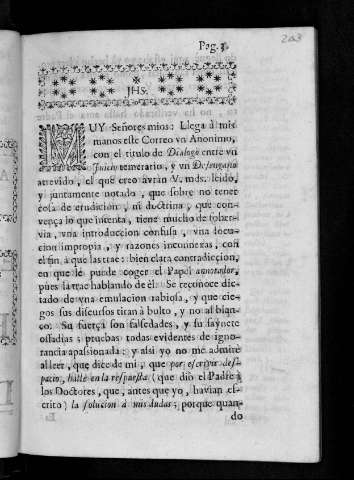 Pag. 3.
203
JHS.
MUY Señores mios: Llega à mis
manos este Correo vn Anonimo,
con el titulo de Dialogo entre vn
Juicio temerario, y vn Desengaño
atrevido, el que creo avràn V. mds. leìdo,
y juntamente notado, que sobre no tener
cosa de erudicion, ni doctrina, que con-
vença lo que intenta, tiene mucho de
vna introduccion confusa, vna locu-
cion impropia, y razones inconnexas, con
el fin à que las trae: bien clara contradiccion,
en que le puede coger el Papel annotador,
pues la trae hablando de èl. Se reconoce dic-
tado de vna emulacion rabiosa, y que cie-
gos sus discursos tiran à bulto, y no al blan-
co. Su fuerça son falsedades, y su saynete
ossadias; pruebas todas evidentes de igno-
rancia apasionada: y assi yo no me admirè
al leer, que dice de mi, que por escrivir des-
pacio, hallè en la respuesta (que diò el Padre à
los Doctores, que, antes que yo, havian es-
crito) la solucion à mis dudas; porque quan-
do